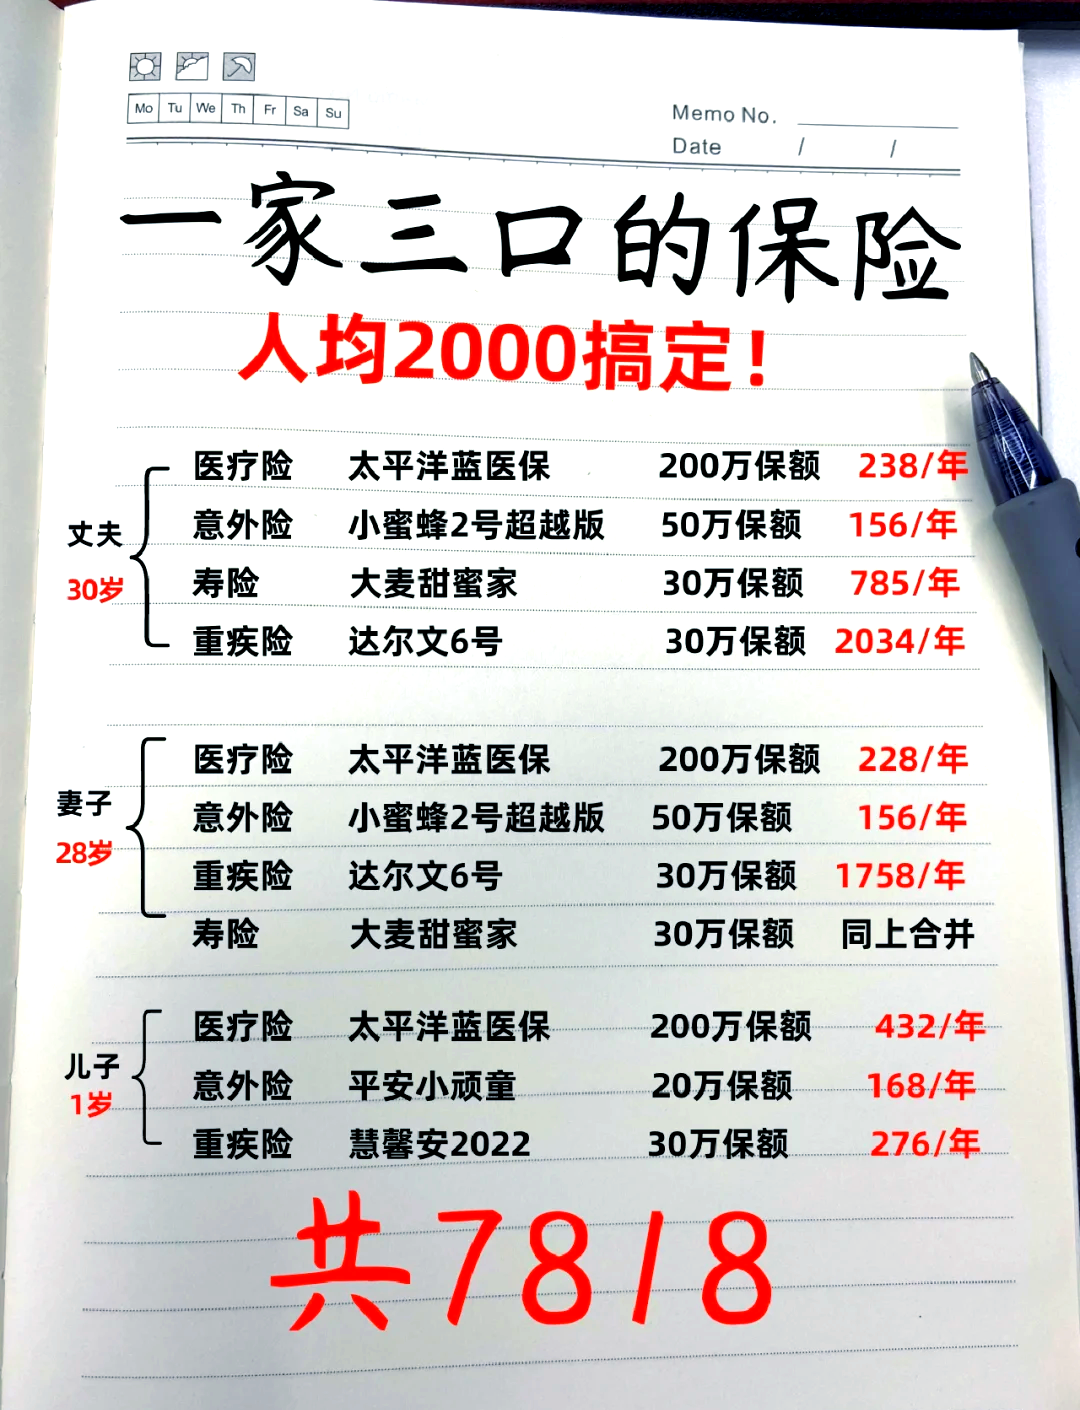 Mo Tu We Th Fr Sa Su
Memo No.
Date / /
一家三口的保险
人均2000搞定!
丈夫
30岁
医疗险 太平洋蓝医保 200万保额 238/年
意外险 小蜜蜂2号超越版 50万保额 156/年
寿险 大麦甜蜜家 30万保额 785/年
重疾险 达尔文6号 30万保额 2034/年
妻子
28岁
医疗险 太平洋蓝医保 200万保额 228/年
意外险 小蜜蜂2号超越版 50万保额 156/年
重疾险 达尔文6号 30万保额 1758/年
寿险 大麦甜蜜家 30万保额 同上合并
儿子
1岁
医疗险 太平洋蓝医保 200万保额 432/年
意外险 平安小顽童 20万保额 168/年
重疾险 慧馨安2022 30万保额 276/年
共7818